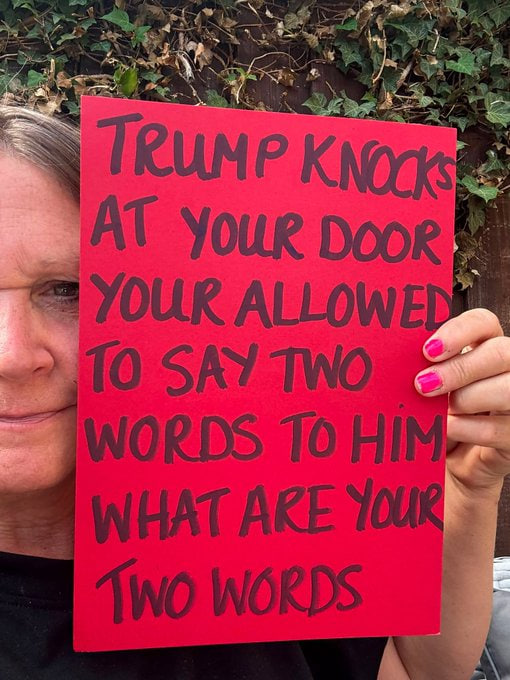 TRUMP KNOCKS
AT YOUR DOOR
YOUR ALLOWED
TO SAY TWO
WORDS TO HIM
WHAT ARE YOUR
TWO WORDS